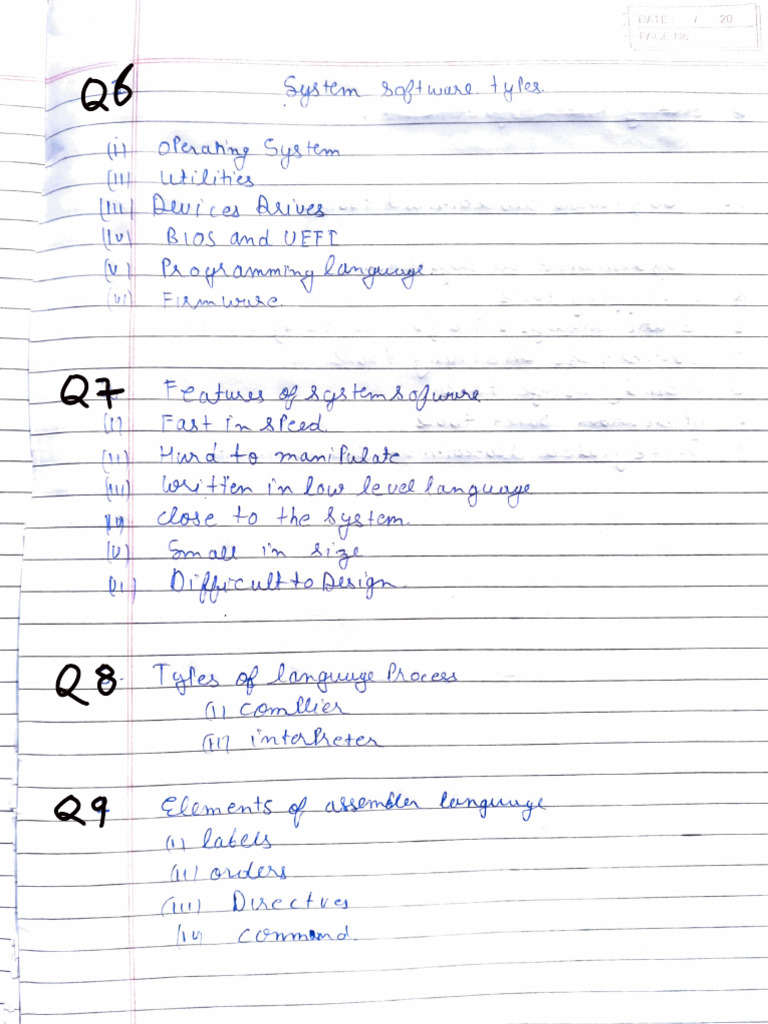 DATE: / 20
PAGE No.
Q6 System software types.
(i) Operating System
(ii) Utilities
(iii) Devices Drives
(iv) BIOS and UEFI
(v) Programming language
(vi) Firmwure.
Q7 Features of system sofwure
(i) Fast in speed.
(ii) Hurd to manipulate
(iii) Written in low level language
iv close to the system.
(v) Small in size
(vi) Difficult to Design.
Q8 Types of language Process
(i) compiler
(ii) interpreter
Q9 Elements of assembler language
(i) labels
(ii) orders
(iii) Directves
(iv command.